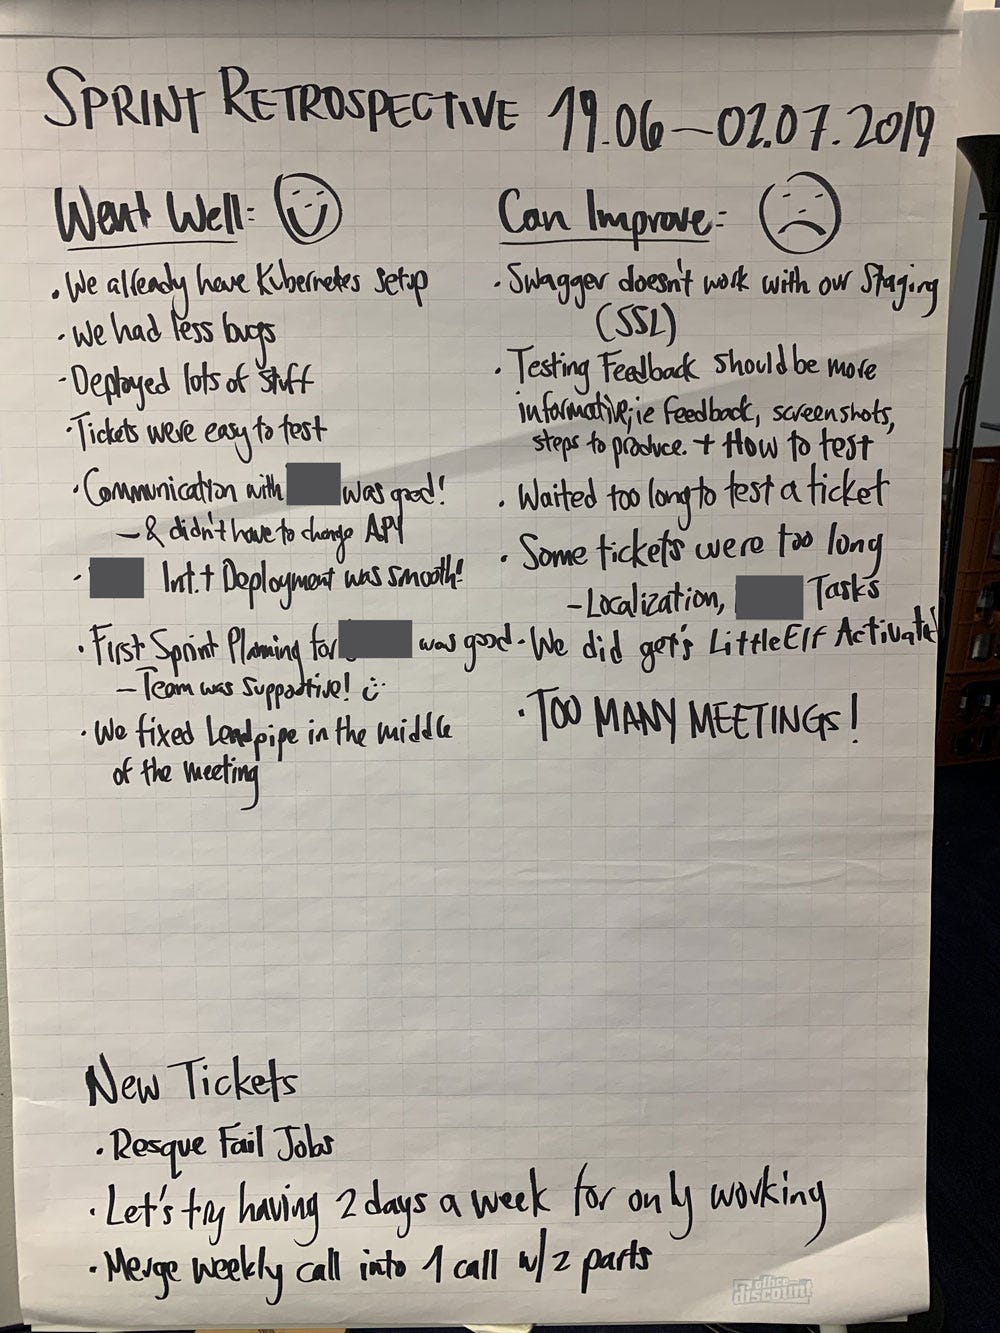 SPRINT RETROSPECTIVE 19.06 — 02.07.2019
Went Well:
• We already have Kubernetes setup
• We had less bugs
• Deployed lots of stuff
• Tickets were easy to test
• Communication with was good!
— & didn't have to change API
• Int. + Deployment was smooth!
• First Sprint Planning for was good
— Team was supportive!
• We fixed Leadpipe in the middle
of the meeting
Can Improve:
• Swagger doesn't work with our Staging
(SSL)
• Testing Feedback should be more
informative; ie feedback, screenshots,
steps to produce. + How to test
• Waited too long to test a ticket
• Some tickets were too long
– Localization, Tasks
- We did get's LittleElf Activate
• TOO MANY MEETINGS!
New Tickets
• Resque Fail Jobs
• Let's try having 2 days a week for only working
• Merge weekly call into 1 call w/ 2 parts
office
discount